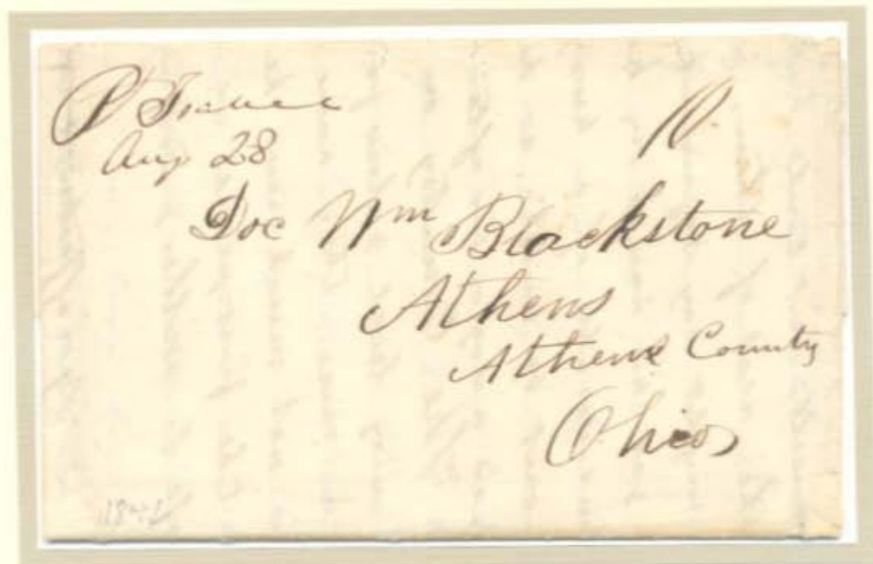 Aug 28
10.
Doc Wm Blackstone
Athens
Athens County
Ohio